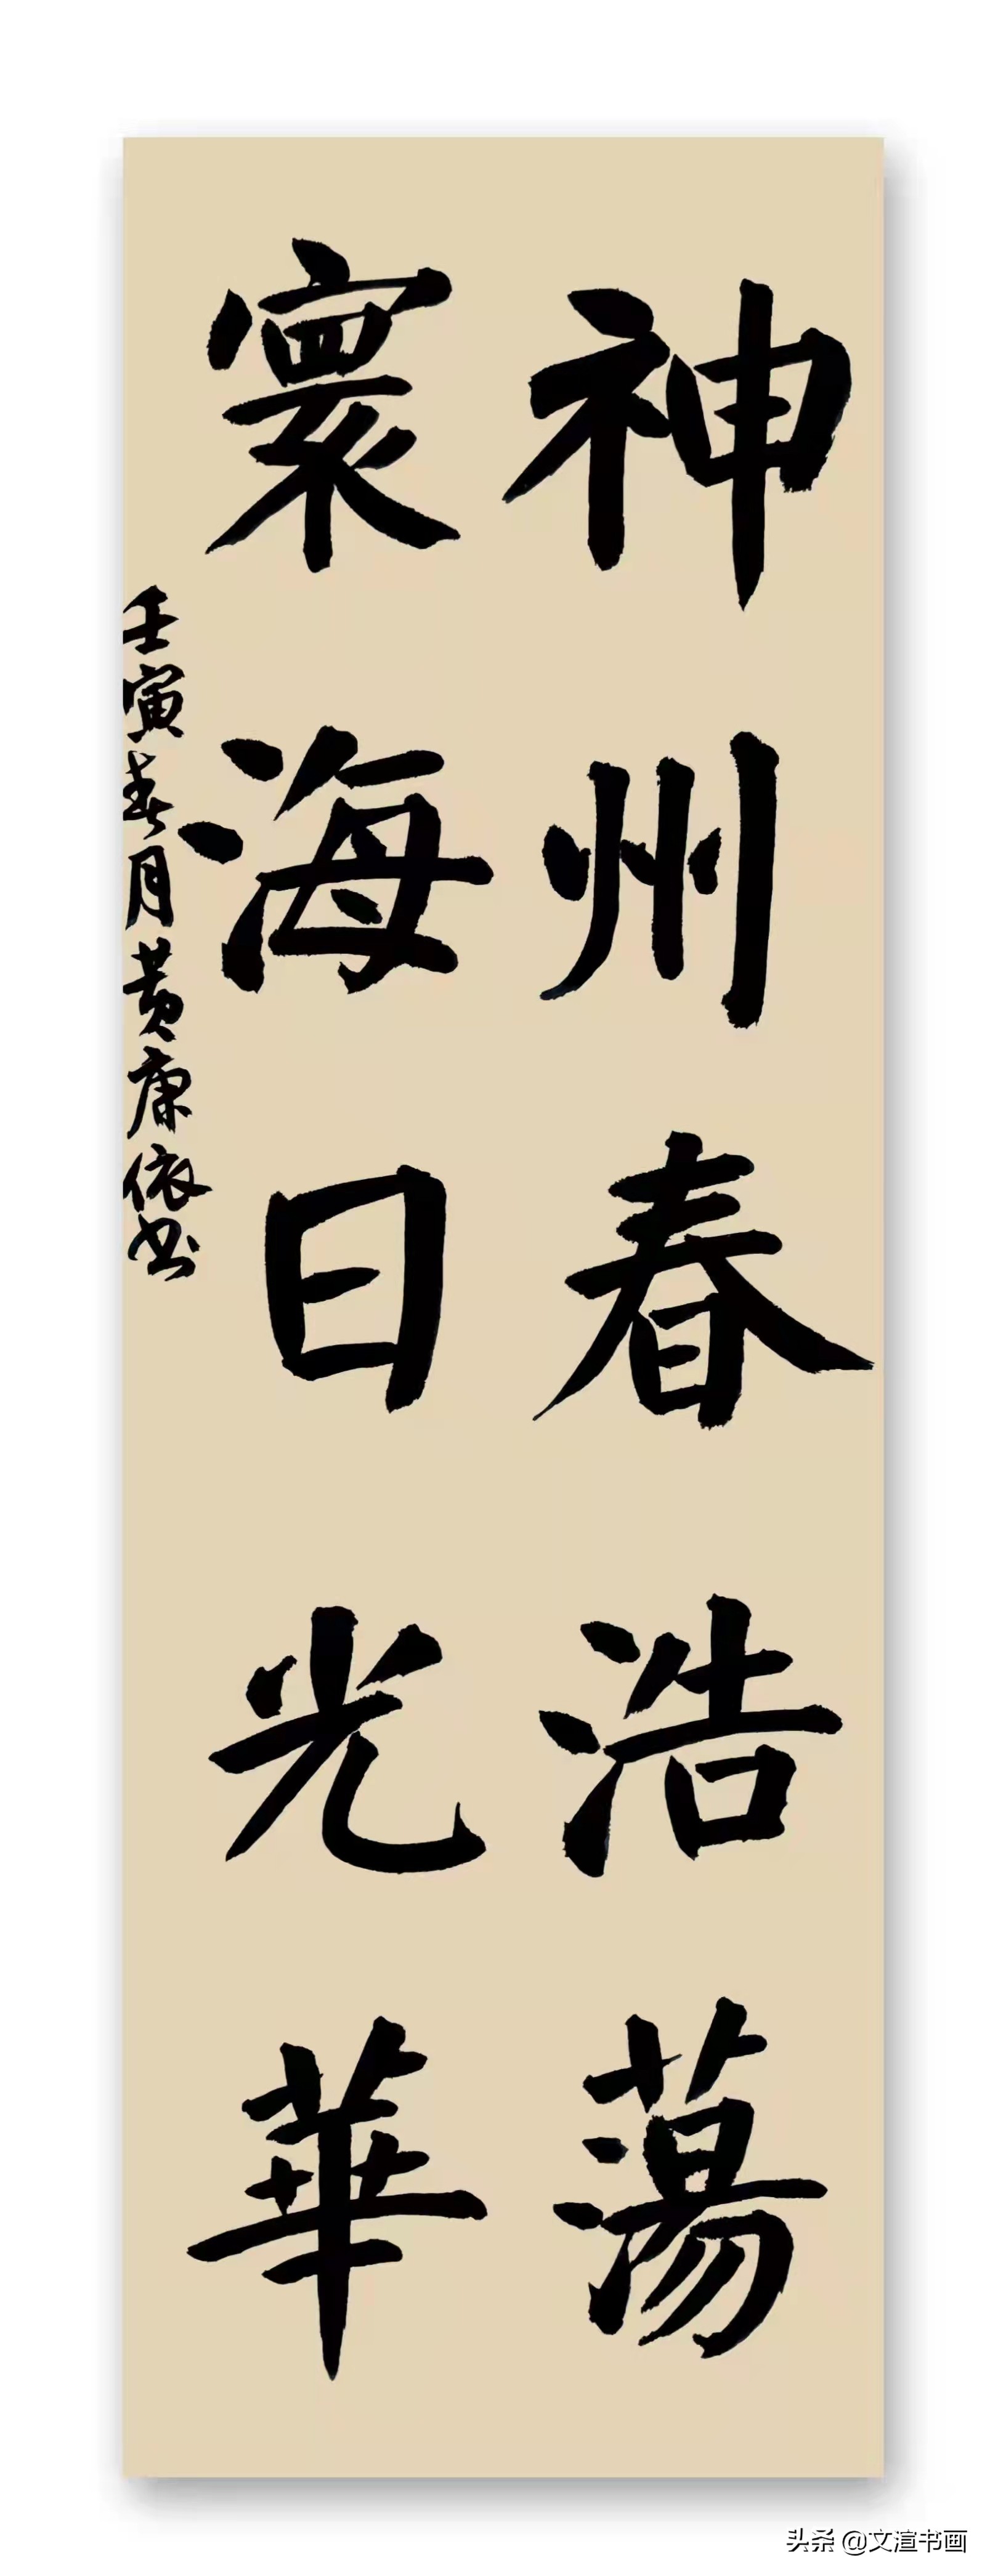 神州春浩蕩
寰海日光華
壬寅春月黄康依书
头条 @文渲书画